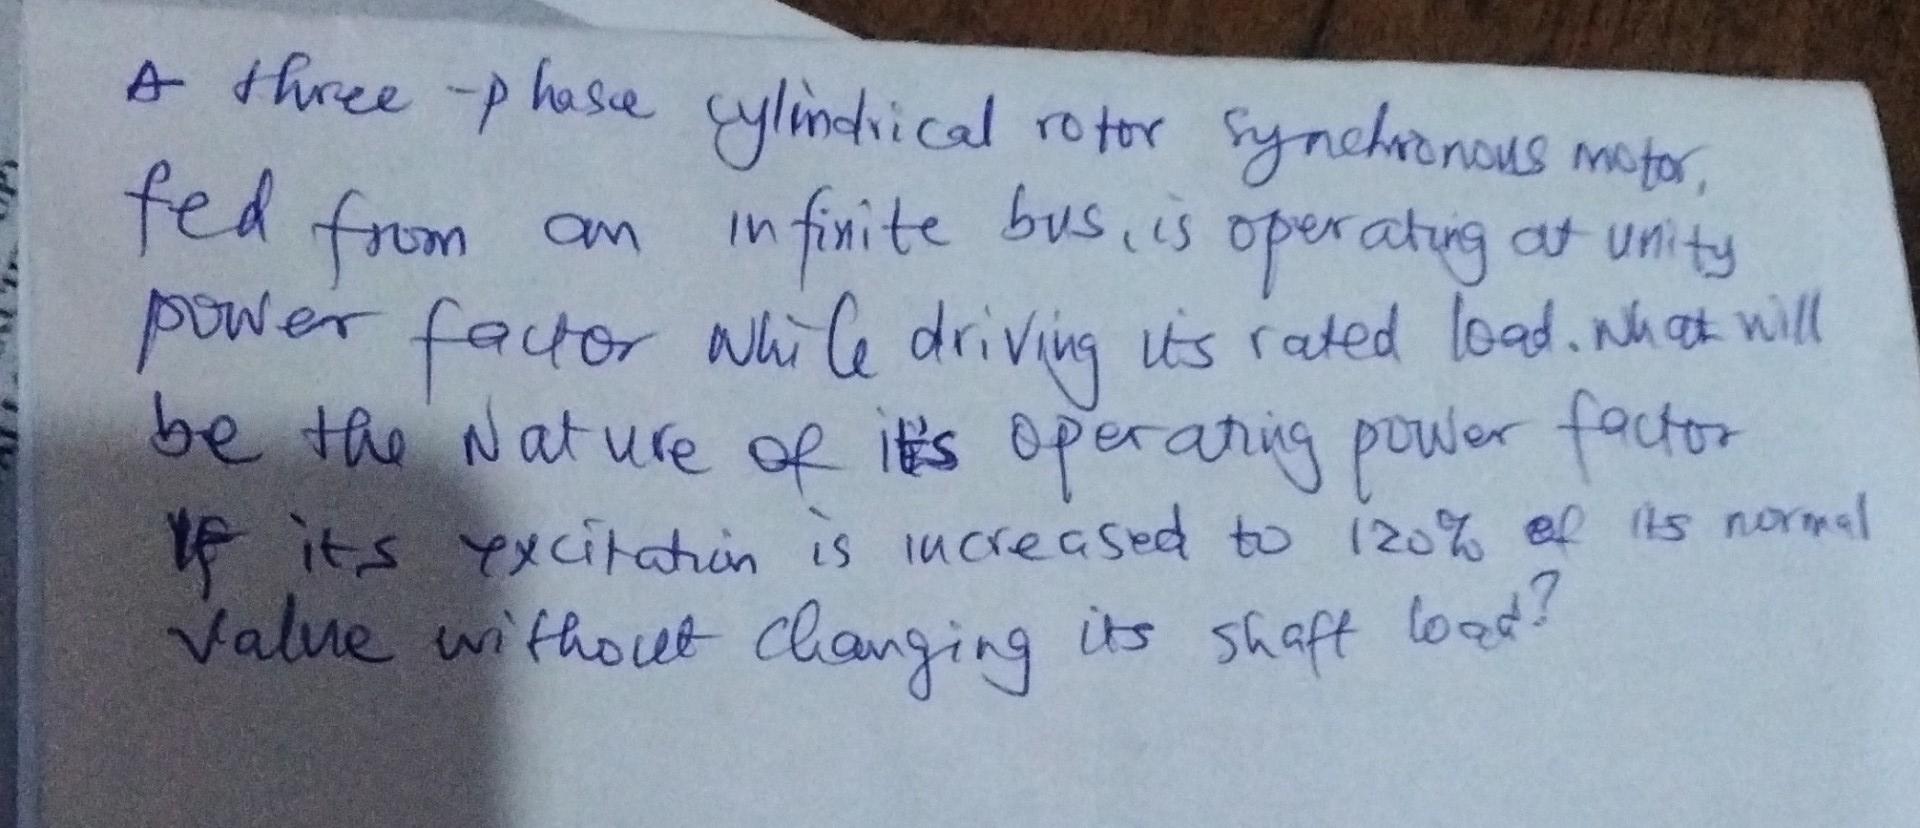 A three-phase cylindrical rotor synchronous motor,
fed from an infinite bus, is operating at unity
power factor while driving its rated load. What will
be the Nature of its operating power factor
If its excitation is increased to 120% of its normal
value without changing its shaft load?